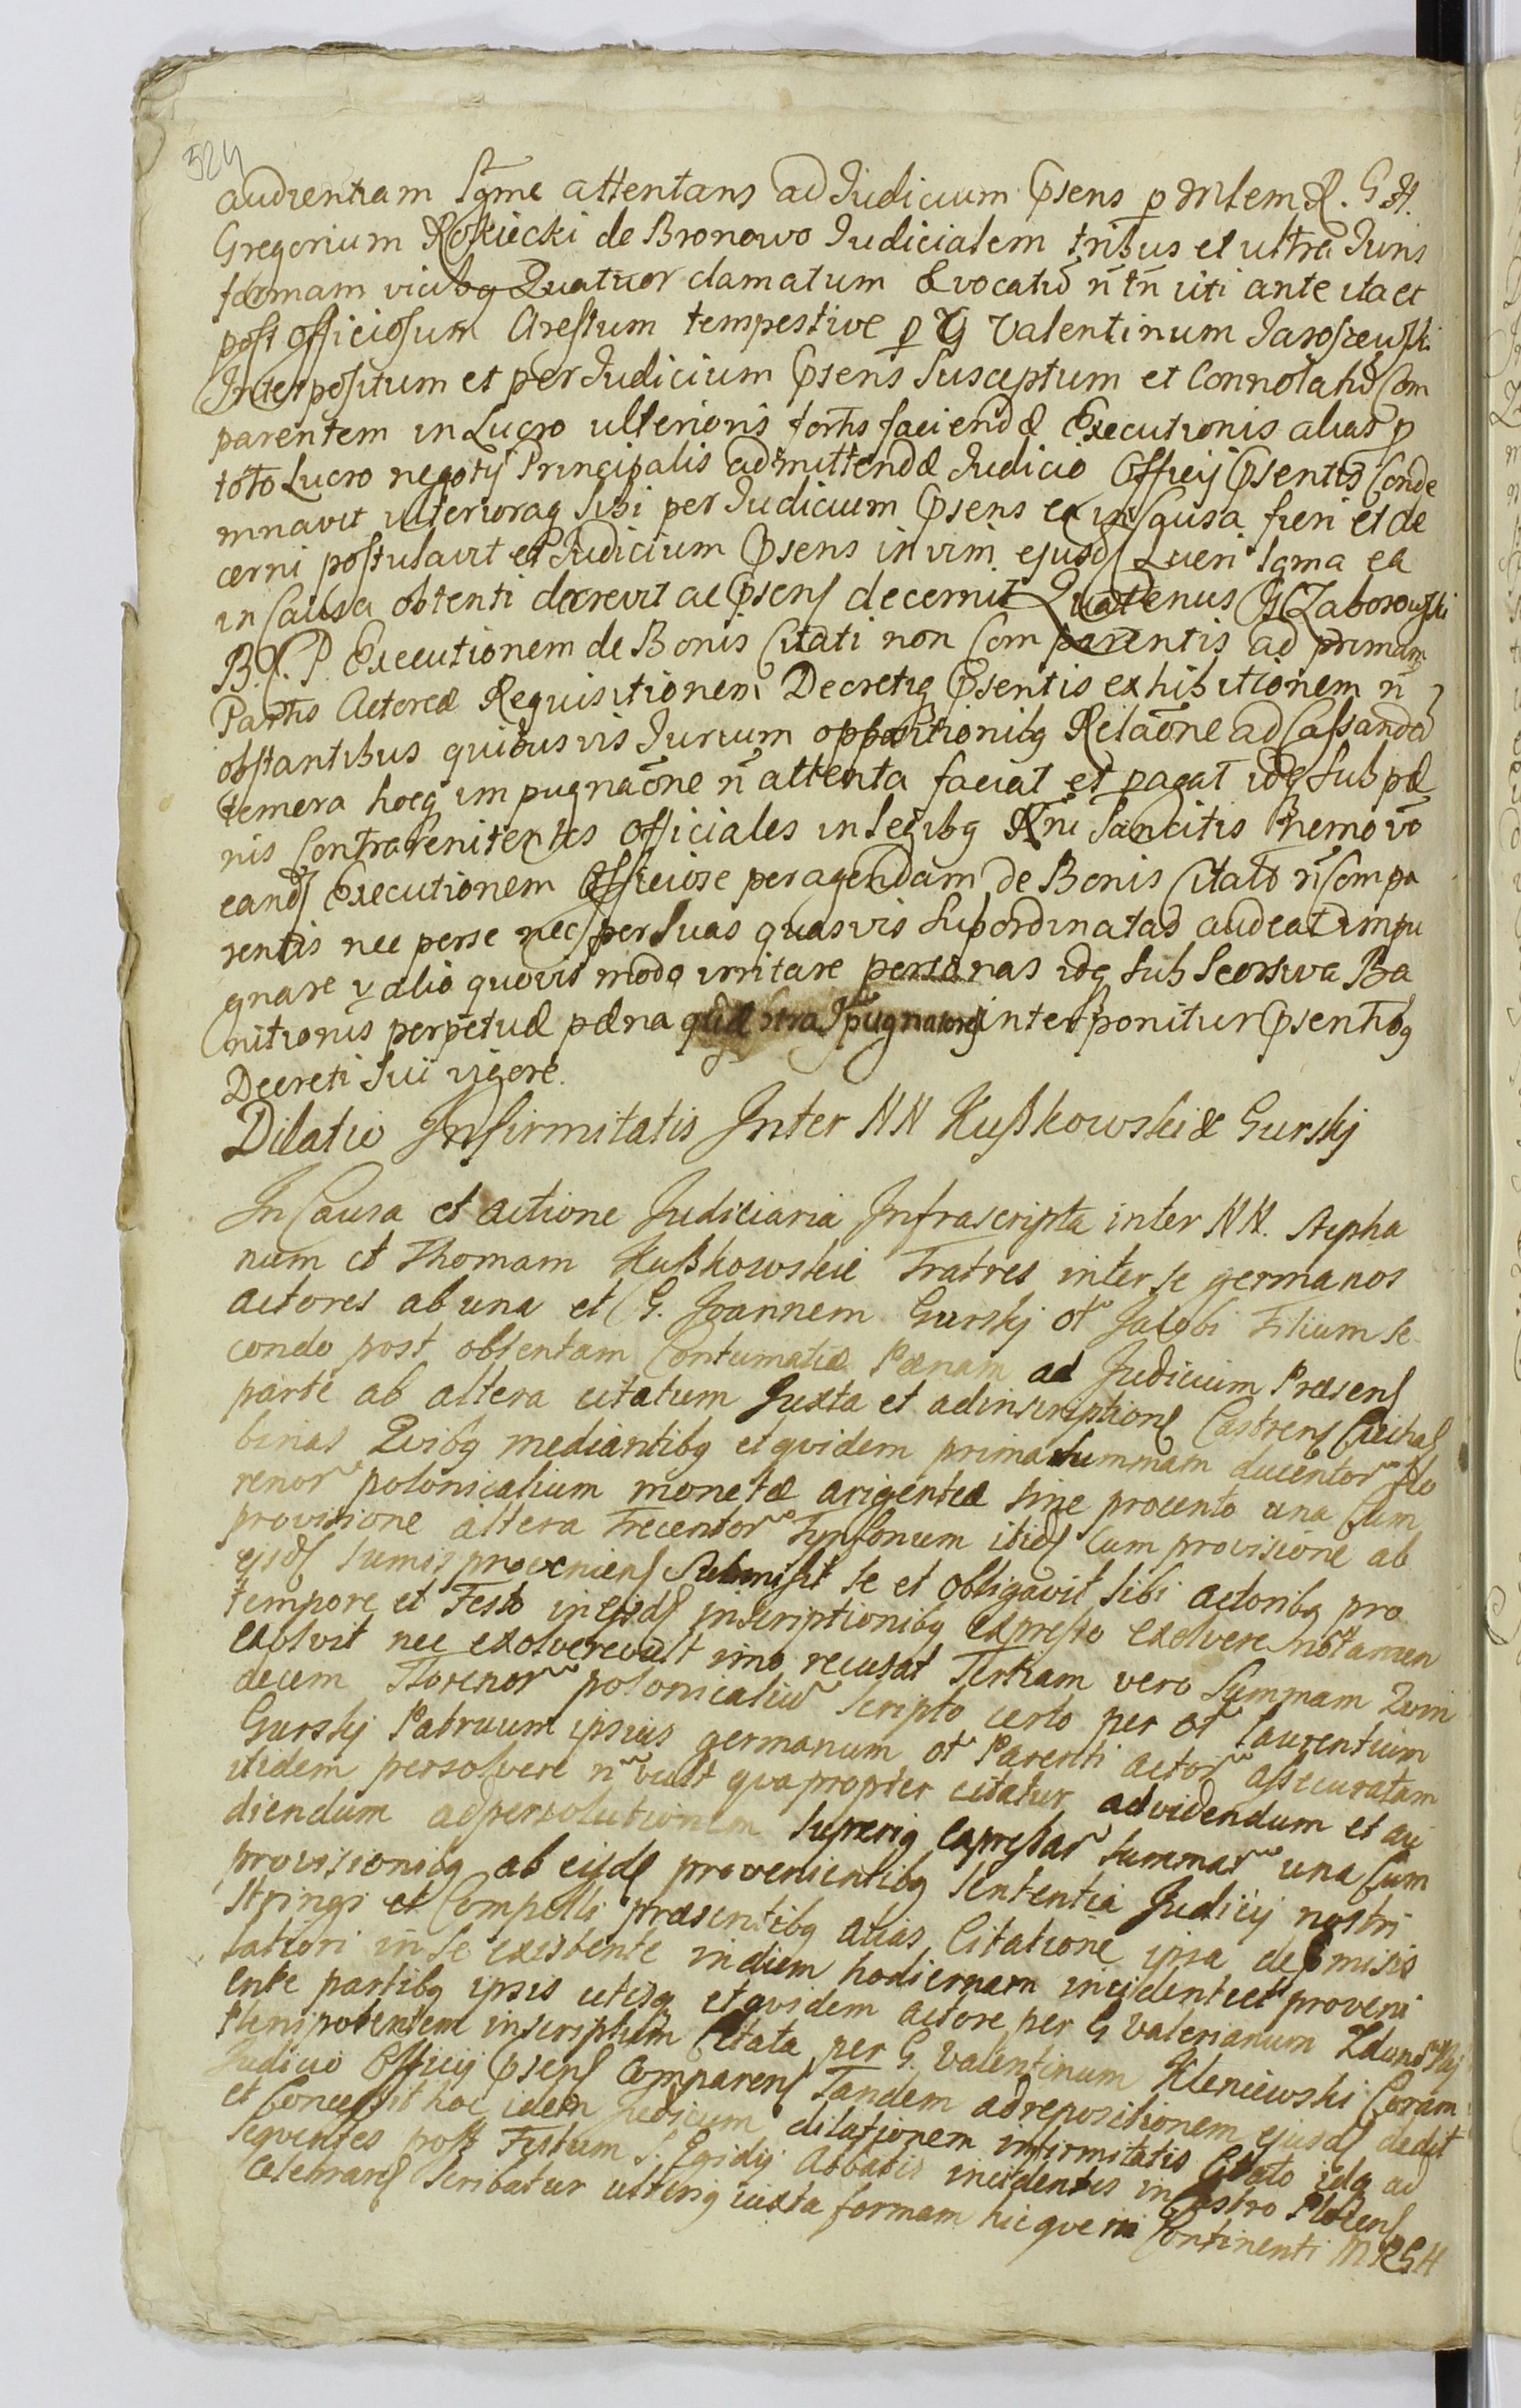 524
audientiam Igme attentans ad Judicium Psens p Mlem R. G. H.
Gregorium Rokiecki de Bronowo Judicialem tribus et ultra Juris
formam vicibq Quatuor clamatum & vocatu n tn uti ante ita et
post officiosum Arestum tempestive p G Valentinum Jaroszewski
Interpositum et per Judicium Psens Susceptum et Connotatu Com
parentem in Lucro ulterioris fortis faciendæ Executionis alias p
toto Lucro negotÿ Principalis admittendæ Judicio Officÿ Psentis Conde
mnavit ulterioraq sibi per Judicium Psens ex in Causa fieri et de
cerni postulavit et Judicium Psens in vim ejusd Lucri Igma ea
in Causa obtenti decrevit ac Psens decernit Quatenus G Zaborowski
B. C. P. Executionem de Bonis Citati non Comparentis ad primam
Partis Actoreæ Requisitionem Decretiq Psentis exhibitionem n
obstantibus quibusvis Jurium oppositionibq Relaone ad Cassanda
temera hocq impugnaone n attenta faciat et pagat idq sub pæ
nis Contravenientes Officiales in Legibq Rni Sancitis Nemo vo
eand Executionem Officiose peragendam de Bonis Citato n Compa
rentis nec per se nec per suas quasvis subordinatas audeat impu
gnare v alio quovis modo irritare personas idq sub Seorsiva Ba
nitionis perpetuæ pæna quæ stra Ipugnatores interponitur Psentibq
Decreti sui vigore.
Dilatio Infirmitatis Inter NN Kußkowskie & Gurskj
In Causa et actione Judiciaria Infrascripta inter NN. Stepha
num et Thomam Kußkowskie Fratres inter se germanos
actores ab una et G. Joannem Gurskj ol Jacobi Filium se
condo post obtentam Contumatiæ Pænam ad Judicium Præsens
parte ab altera citatum Juxta et ad inscriptiones Castrens Ciechas
binas Quibq mediantibq et quidem prima summam ducentor Flo
renor polonicalium monetæ arigenteæ sine procento una Cum
provisione altera Trecentor Tynfonum itid Cum provisione ab
ejsd sumis proveniens Submisit se et obligavit sibi actoribq pro
tempore et Festo in ejsd inscriptionibq expresso exolvere nontamen
exolvit nec exolvere vult imo recusat Tertiam vero Summam Quin
decem Florenor polonicaliu Scripto certo per ol Laurentium
Gurskj Patruum ipsius germanum ol Parenti actor assecuratam
itidem persolvere n vult qvapropter citatur ad videndum et au
diendum ad persolutionem superiq expressar summar una Cum
provisionibq ab eisd provenientibq Sententia Judicij nostri
stringi et Compelli præsentibq alias Citatione ipsa de p misis
latiori in se existente in diem hodiernam incidente et proveni
ente partibq ipsis utrisq et qvidem actore per G Valerianum Zdunowskj
Plenipotentem inscriptum Citata per G. Valentinum Kleniewski Coram
Judicio Officij Psens Comparens Tandem ad repositionem ejusd dedit
et Concessit hoc idem Judicium dilationem infirmitatis Citato idq ad
sequentes post Festum S. Egidij Abbatis incidentes in Castro Plocens
Celebrans Scribatur ulteriq iuxta formam hic que in Continenti MRGH